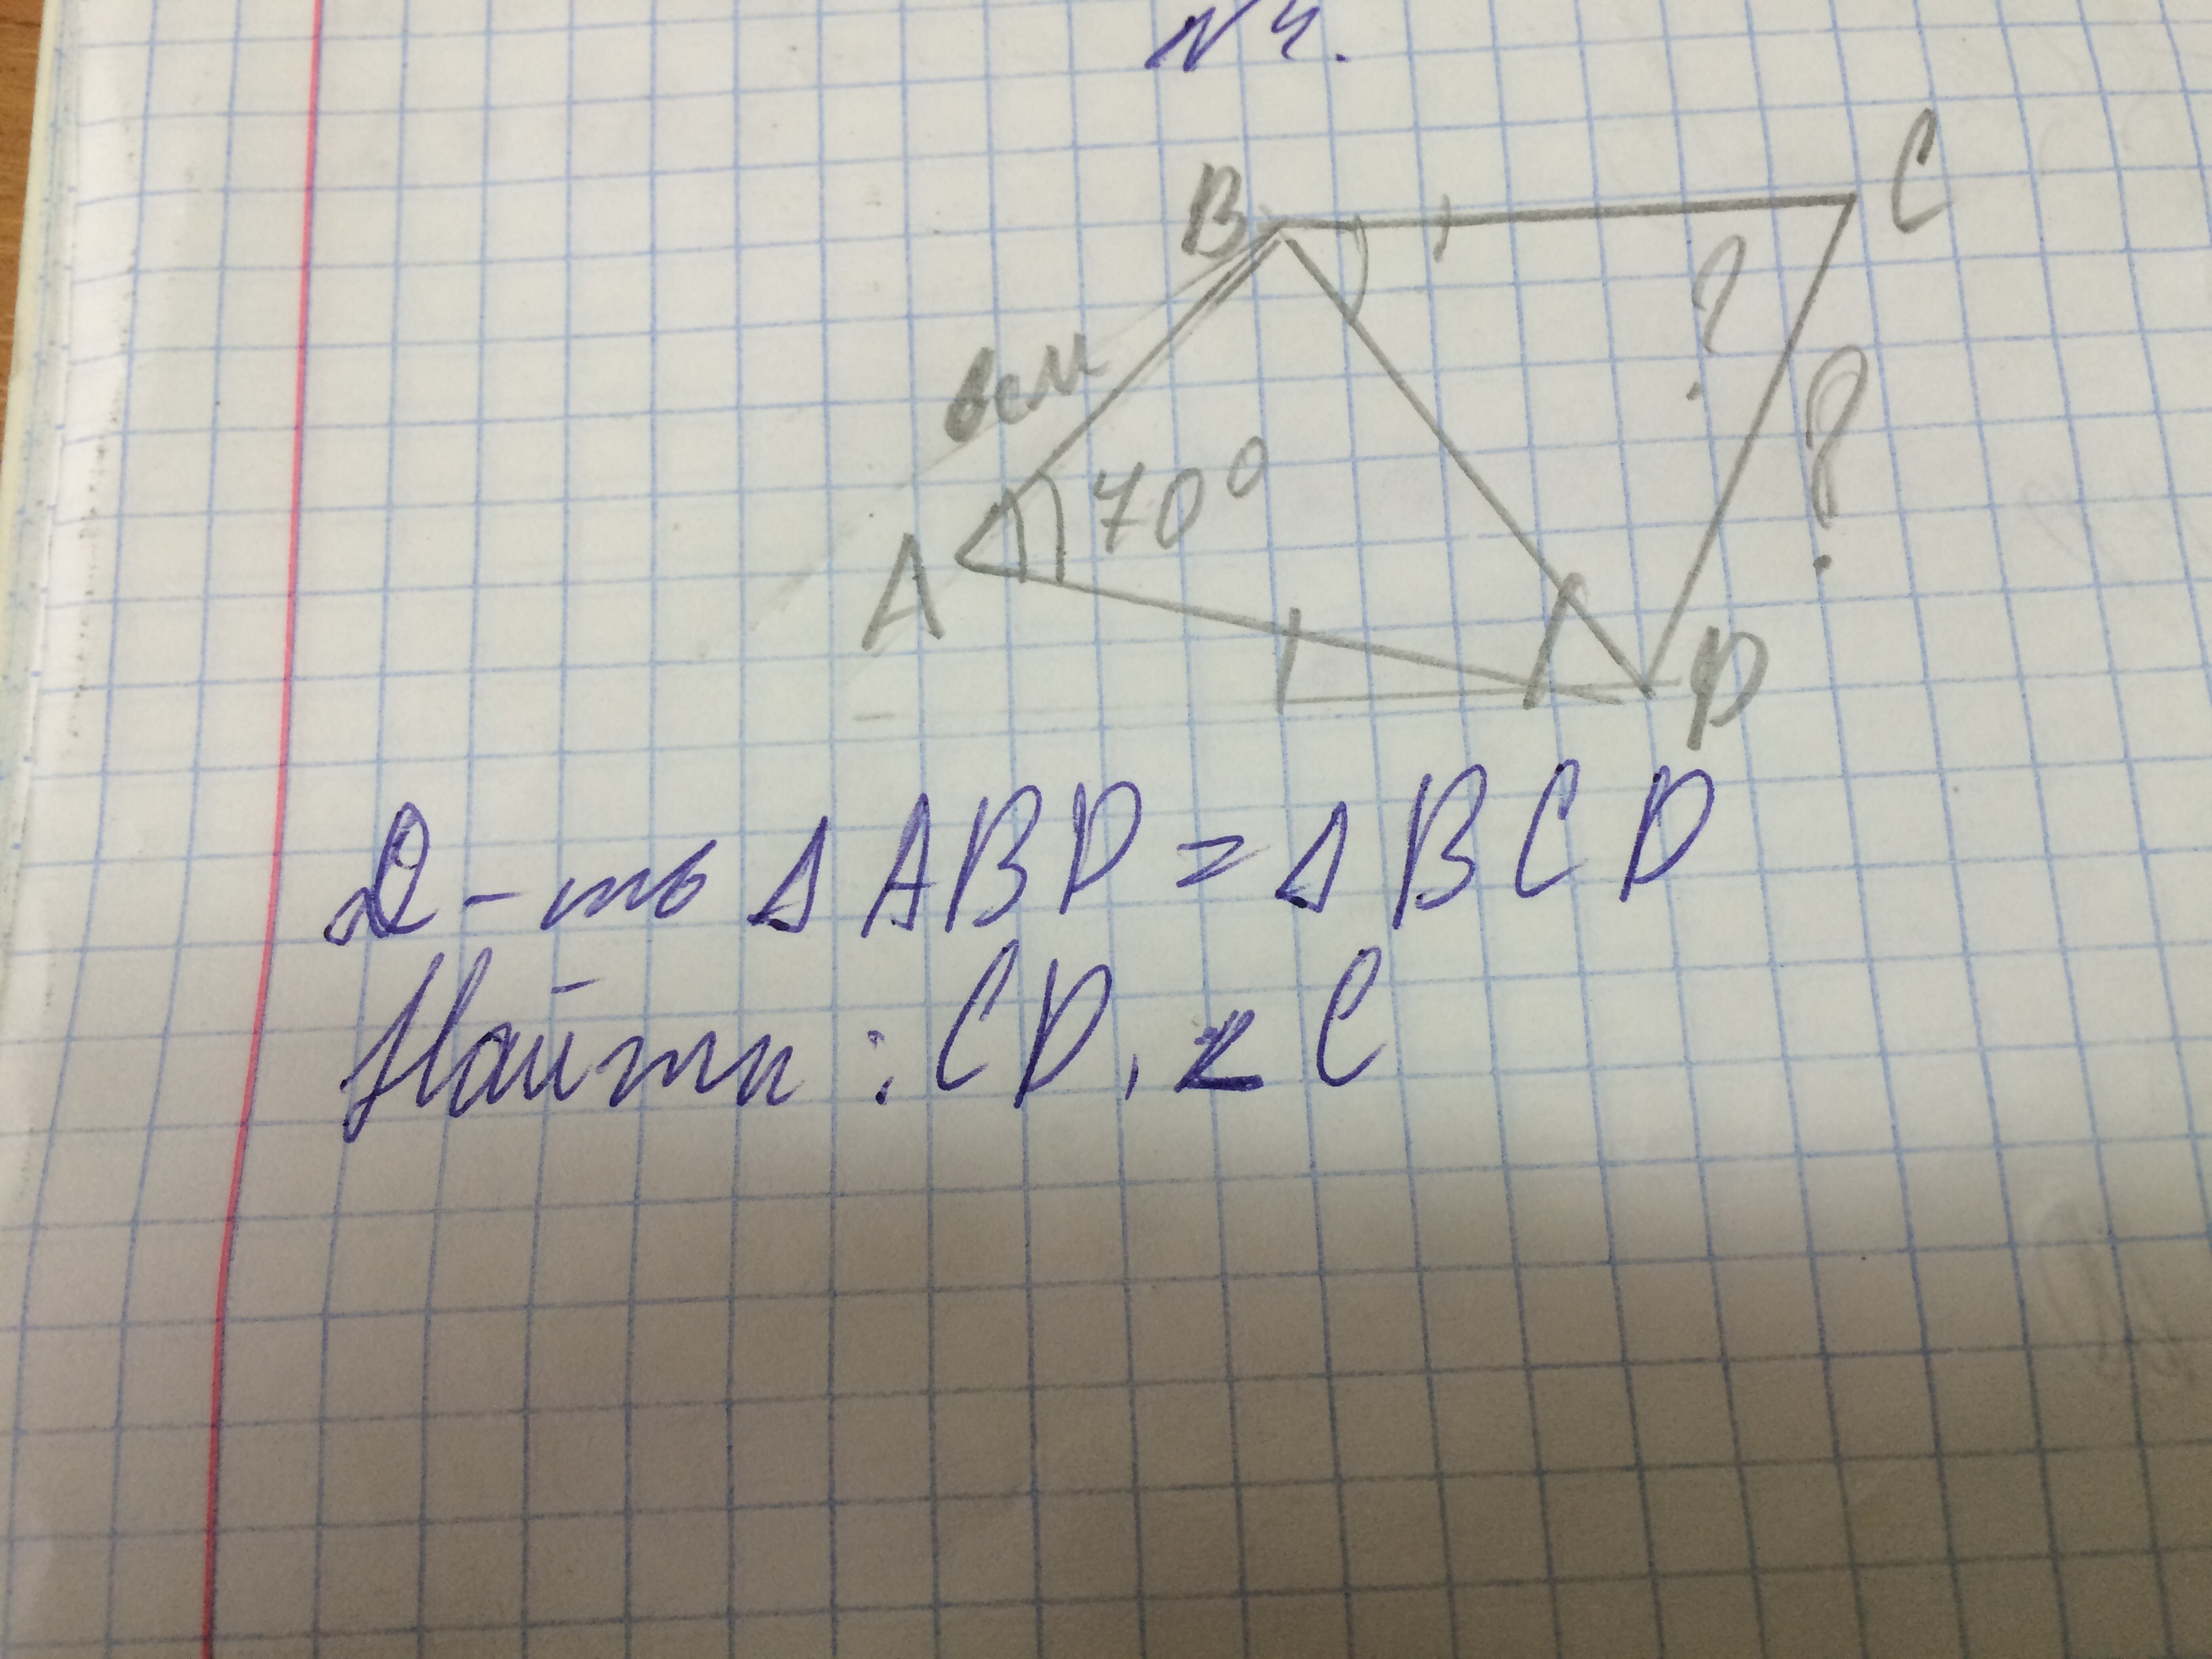 N4.
B
C
6см
?
A
70°
?
D
Д-ть Δ ABD = Δ BCD
Найти: CD, ∠C